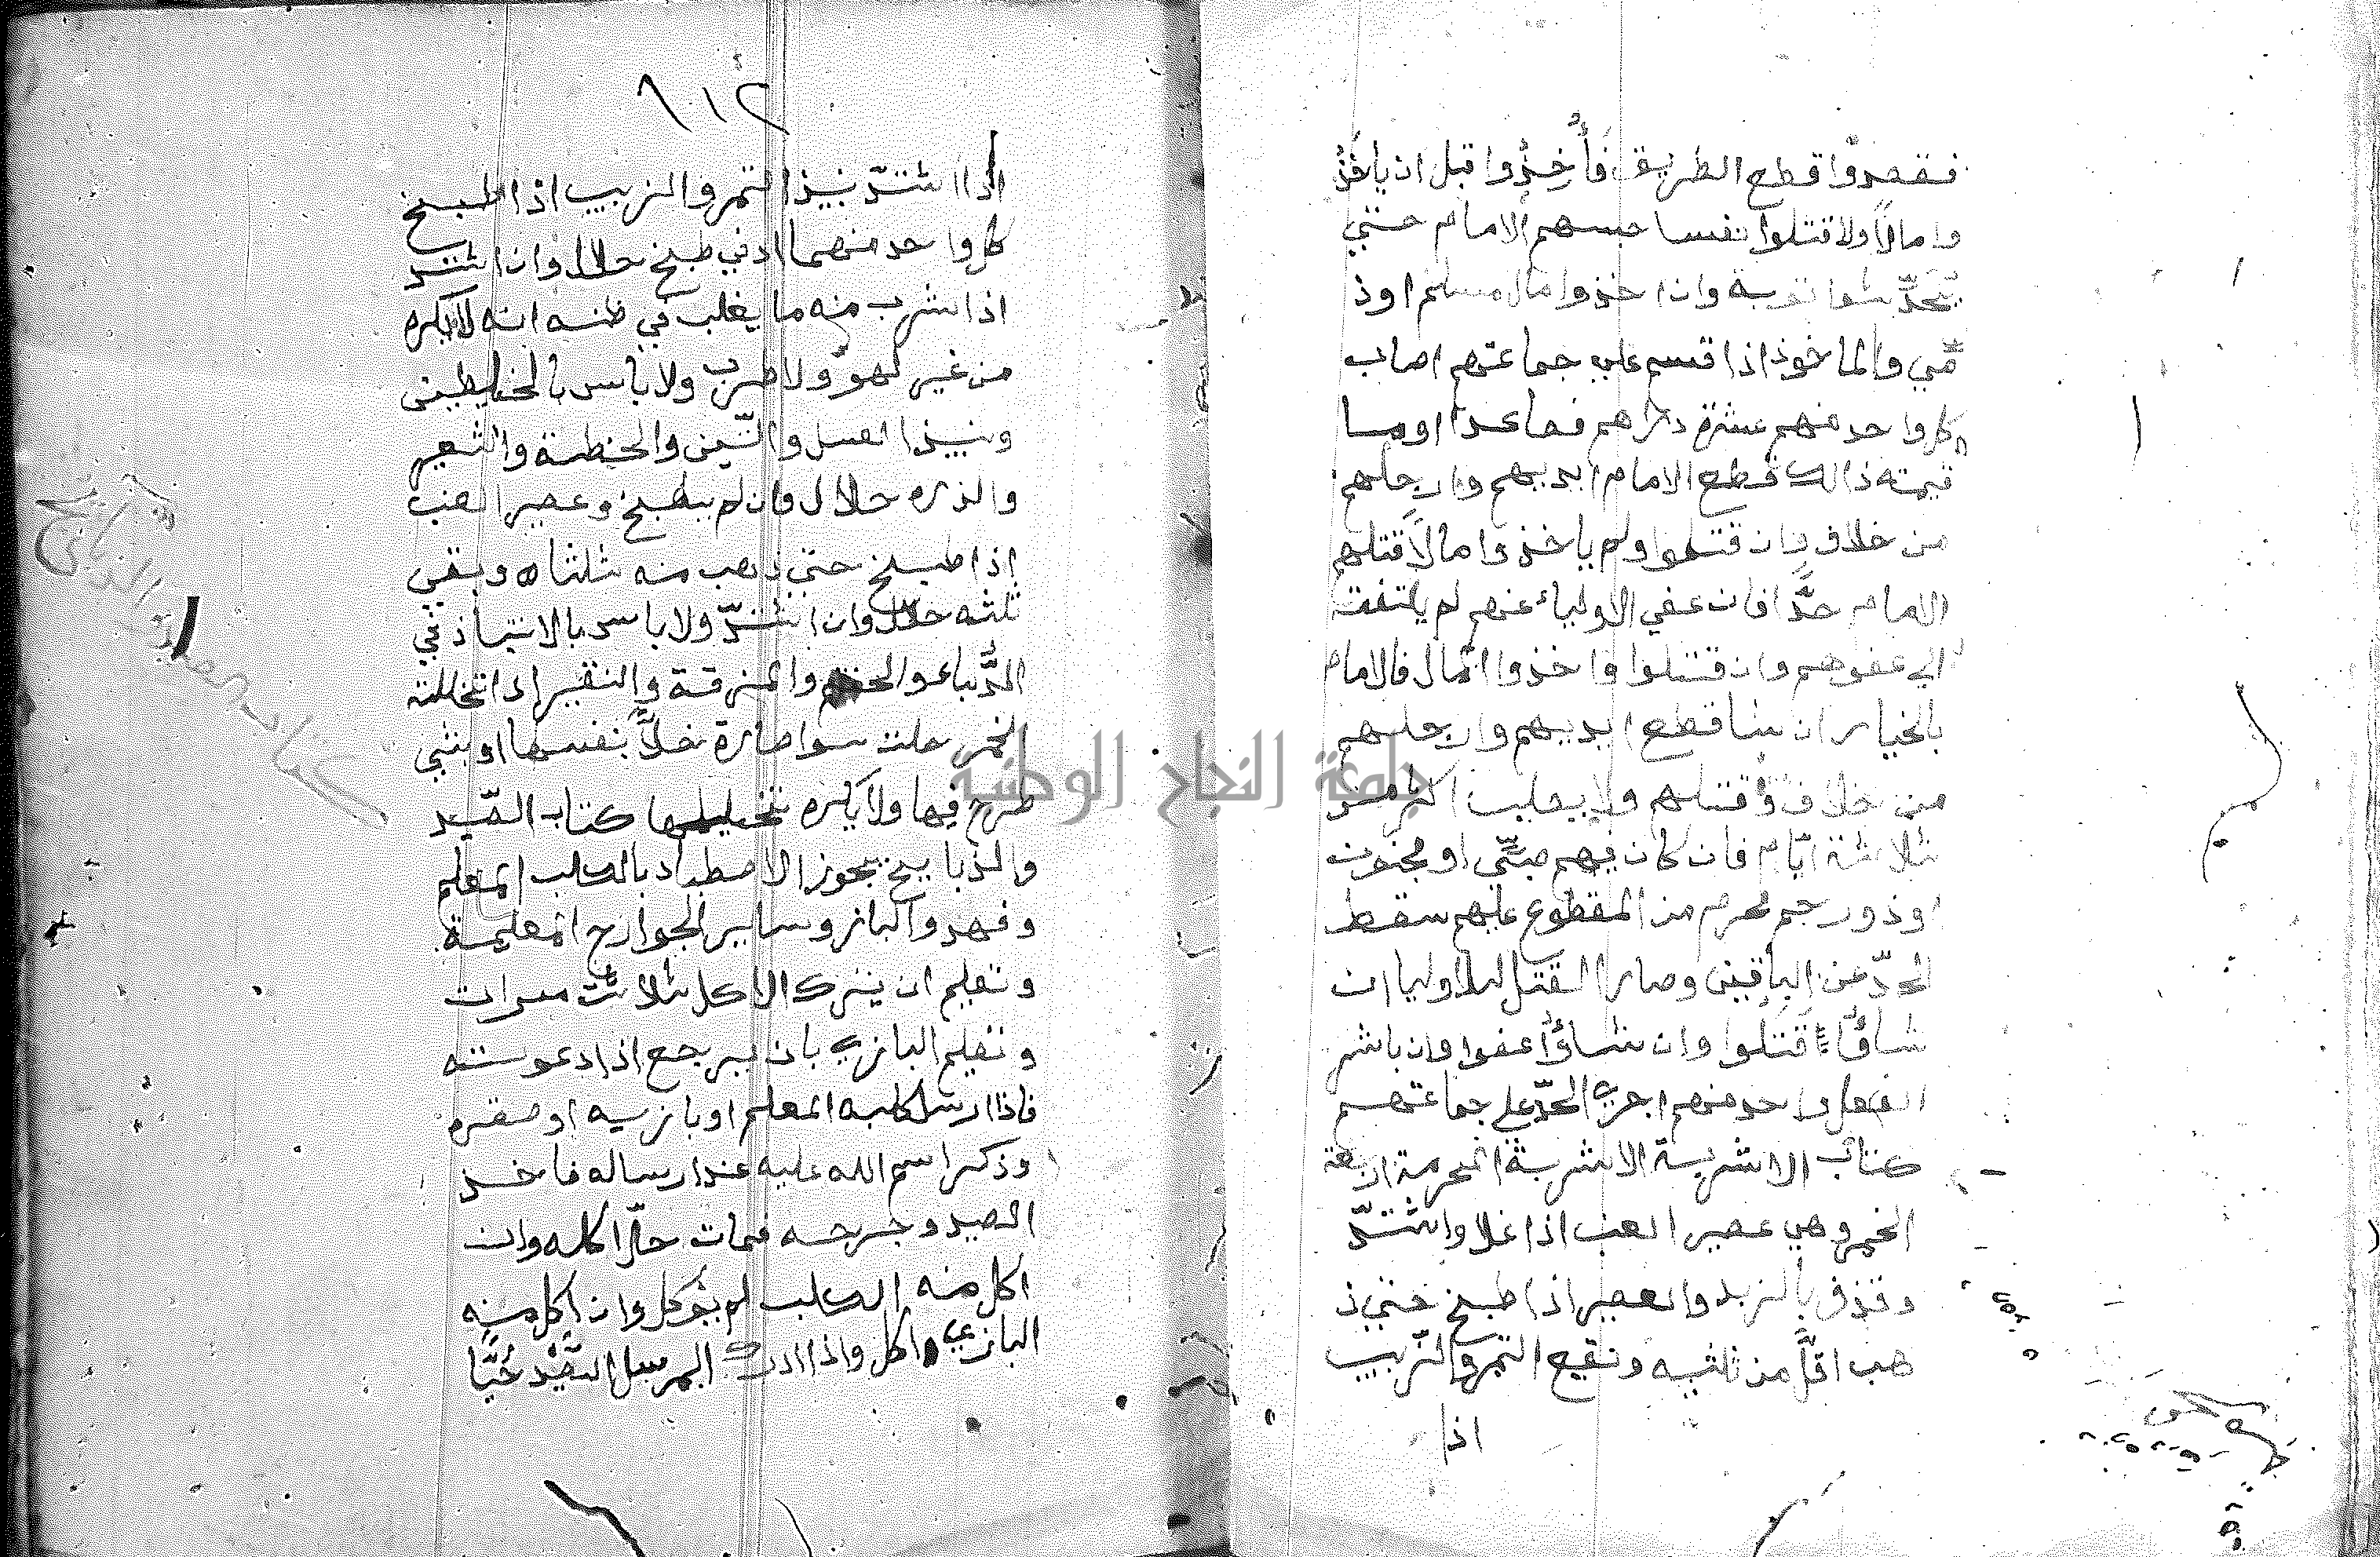 فقصدوا قطع الطريق فأخذوا قبل ان ياخذ
وا مالاً ولا قتلوا نفسا حبسهم الامام حتي
يحدّثوا توبة وان اخذوا مال مسلم اوذ
مّي والماخوذ اذا قسم علي جماعتهم اصاب
كل واحد منهم عشرة دراهم فصاعدا او ما
قيمته ذالك قطع الامام ايديهم وارجلهم
من خلاف وان قتلوا ولم ياخذوا مالا قتلهم
الامام حدًّا فان عفي الاولياء عنهم لم يلتفت
الي عفوهم وان قتلوا واخذوا المال فالامام
بالخيار ان شا قطع ايديهم وارجلهم
من خلاف وقتلهم ولا يصلب اكثر من
ثلاثة ايّام فان كان فيهم صبيّ او مجنون
او ذو رحم محرم من المقطوع عليهم سقط
الحدّ عن الباقين وصار القتل للاوليا ان
شاؤا قتلوا وان شاؤا عفوا وان باشر
الفعل واحد منهم اجري الحدّ علي جماعتهم
كتاب الاشربة الاشربة المحرمة اربعة
الخمر وهي عصير العنب اذا غلا واشتدّ
وقذف بالزبد والعصير اذا طبخ حتي ذ
هب اقلّ من ثلثيه ونقيع التمر والزّبيب
اذا
٩١٢
اذا اشتدّ نبيذ التمر والزبيب اذا طبخ
كل واحد منهما ادني طبخ حلال وان اشتد
اذا شرب منه ما يغلب في ظنه انه لا يكره
من غير لهو ولا طرب ولا باس بالخليطين
ونبيذ العسل والتّين والحنطة والشعير
والذره حلال وان لم يطبخ وعصير العنب
اذا طبخ حتي ذهب منه ثلثاه وبقي
ثلثه حلال وان اشتدّ ولا باس بالانتباذ في
الدُّباء والحنتم والمزفة والنقير اذا تخللت
الخمر حلت سوا صارة خلاًّ بنفسها او بشي
طرح فيها ولا يكره تخليلها كتاب الصّيد
والذبايح يجوز الاصطياد بالكلب المعلم
وفهد والباز وساير الجوارح المعلمة
وتعليم ان يترك الاكل ثلاث مرات
وتعليم البازي بان يرجع اذا دعوته
فاذا ارسل كلبه المعلم او بازيه او صقره
وذكر اسم الله عليه عند ارساله فاخذ
الصيد وجرحه فمات حلّ اكله وان
اكل منه الكلب لم يؤكل وان اكل منه
البازي اكل واذا ادرك المرسل الصّيد حيًّا
جامعة النجاح الوطنية